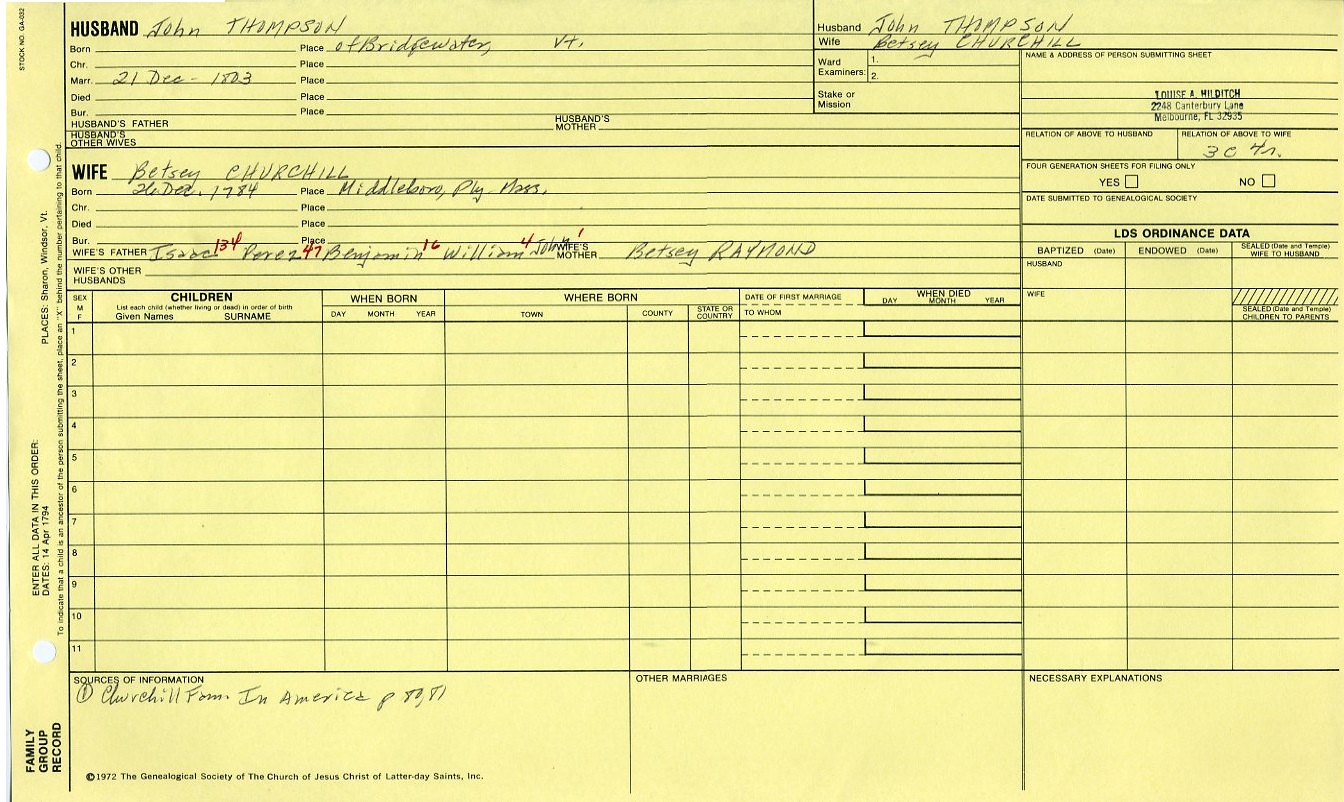 STOCK NO. GA-032
HUSBAND John THOMPSON
Born Place of Bridgewater, Vt.
Chr. Place
Marr. 21 Dec - 1803 Place
Died Place
Bur. Place
HUSBAND'S FATHER HUSBAND'S MOTHER
HUSBAND'S OTHER WIVES
Husband John THOMPSON
Wife Betsey CHURCHILL
Ward Examiners: 1.
2.
Stake or Mission
NAME & ADDRESS OF PERSON SUBMITTING SHEET
LOUISE A. HILDITCH
2248 Canterbury Lane
Melbourne, FL 32935
RELATION OF ABOVE TO HUSBAND RELATION OF ABOVE TO WIFE
3 c 4r.
FOUR GENERATION SHEETS FOR FILING ONLY
YES NO
DATE SUBMITTED TO GENEALOGICAL SOCIETY
WIFE Betsey CHURCHILL
Born 26 Dec. 1784 Place Middleboro, Ply. Mass.
Chr. Place
Died Place
Bur. Place
WIFE'S FATHER Isaac 134 Perez 47 Benjamin 16 William 4 John 1 WIFE'S MOTHER Betsey RAYMOND
WIFE'S OTHER HUSBANDS
LDS ORDINANCE DATA
BAPTIZED (Date) ENDOWED (Date) SEALED (Date and Temple) WIFE TO HUSBAND
HUSBAND
WIFE
SEALED (Date and Temple) CHILDREN TO PARENTS
SEX M F
CHILDREN
List each child (whether living or dead) in order of birth
Given Names SURNAME
WHEN BORN
DAY MONTH YEAR
WHERE BORN
TOWN COUNTY STATE OR COUNTRY
DATE OF FIRST MARRIAGE
TO WHOM
WHEN DIED
DAY MONTH YEAR
1
2
3
4
5
6
7
8
9
10
11
SOURCES OF INFORMATION
① Churchill Fam. In America p 80, 81
OTHER MARRIAGES
NECESSARY EXPLANATIONS
©1972 The Genealogical Society of The Church of Jesus Christ of Latter-day Saints, Inc.
PLACES: Sharon, Windsor, Vt.
To indicate that a child is an ancestor of the person submitting the sheet, place an "X" behind the number pertaining to that child.
ENTER ALL DATA IN THIS ORDER:
DATES: 14 Apr 1794
FAMILY
GROUP
RECORD